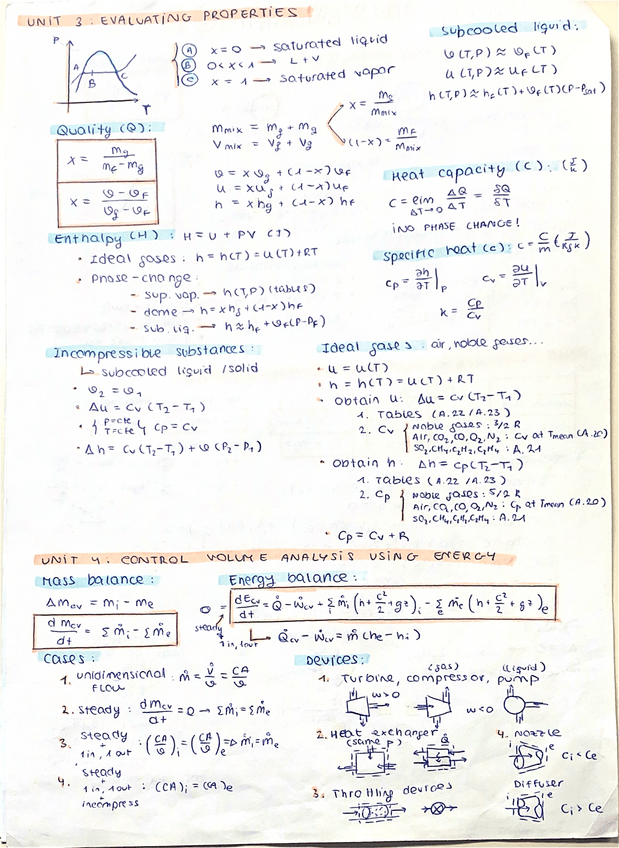 UNIT 3: EVALUATING PROPERTIES
P
A
B
C
T
A x=0 → saturated liquid
B 0<x<1 → L+V
C x=1 → saturated vapor
Subcooled liquid:
υ(T,P) ≈ υF(T)
u(T,P) ≈ uF(T)
h(T,P) ≈ hF(T) + υF(T)(P-Psat)
Quality (Q):
x = mg / mF-mg
x = υ-υF / υg-υF
mmix = mg + mg
Vmix = Vg + Vg
x = mg / mmix
(1-x) = mF / mmix
υ = xυg + (1-x)υF
u = xug + (1-x)uF
h = xhg + (1-x)hF
Heat capacity (C): (J/K)
C = lim ΔT→0 ΔQ/ΔT = δQ/δT
¡NO PHASE CHANGE!
Enthalpy (H): H = U + PV (J)
• Ideal gases: h = h(T) = u(T)+RT
• Phase-change:
- sup. vap. → h(T,P) (tables)
- dome → h = xhg + (1-x)hF
- sub. liq. → h ≈ hF + υF(P-PF)
Specific heat (c): c = C/m (J/kgK)
cp = ∂h/∂T |p cv = ∂u/∂T |v
k = cp/cv
Incompressible substances:
↳ subcooled liquid / solid
• υ2 = υ1
• Δu = Cv (T2-T1)
• { P=cte T=cte } Cp = Cv
• Δh = Cv (T2-T1) + υ (P2-P1)
Ideal gases: air, noble gases...
• u = u(T)
• h = h(T) = u(T) + RT
• Obtain u: Δu = Cv (T2-T1)
1. Tables (A.22 / A.23)
2. Cv { Noble gases: 3/2 R
Air, CO2, CO, O2, N2: Cv at Tmean (A.20)
SO2, CH4, C2H2, C2H4: A.21
• Obtain h: Δh = Cp (T2-T1)
1. Tables (A.22 / A.23)
2. Cp { Noble gases: 5/2 R
Air, CO2, CO, O2, N2: Cp at Tmean (A.20)
SO2, CH4, C2H2, C2H4: A.21
• Cp = Cv + R
UNIT 4: CONTROL VOLUME ANALYSIS USING ENERGY
Mass balance:
Δmcv = mi - me
d mcv / dt = Σṁi - Σṁe
Energy balance:
0 = dEcv/dt = Q̇ - Ẇcv + Σi ṁi (h + c²/2 + gz)i - Σe ṁe (h + c²/2 + gz)e
steady
1 in, 1 out
↳ Q̇cv - Ẇcv = ṁ (he - hi)
Cases:
1. unidimensional flow: ṁ = V̇/υ = CA/υ
2. steady: dmcv/dt = 0 → Σṁi = Σṁe
3. steady + 1 in, 1 out: (CA/υ)i = (CA/υ)e ⇒ ṁi = ṁe
4. steady + 1 in, 1 out + incompress: (CA)i = (CA)e
Devices:
1. Turbine, compressor, pump
(gas) (liquid)
w>0
w<0
2. Heat exchanger
(same p)
Q̇
3. Throttling devices
4. Nozzle
i e
Ci < Ce
Diffuser
i e
Ci > Ce